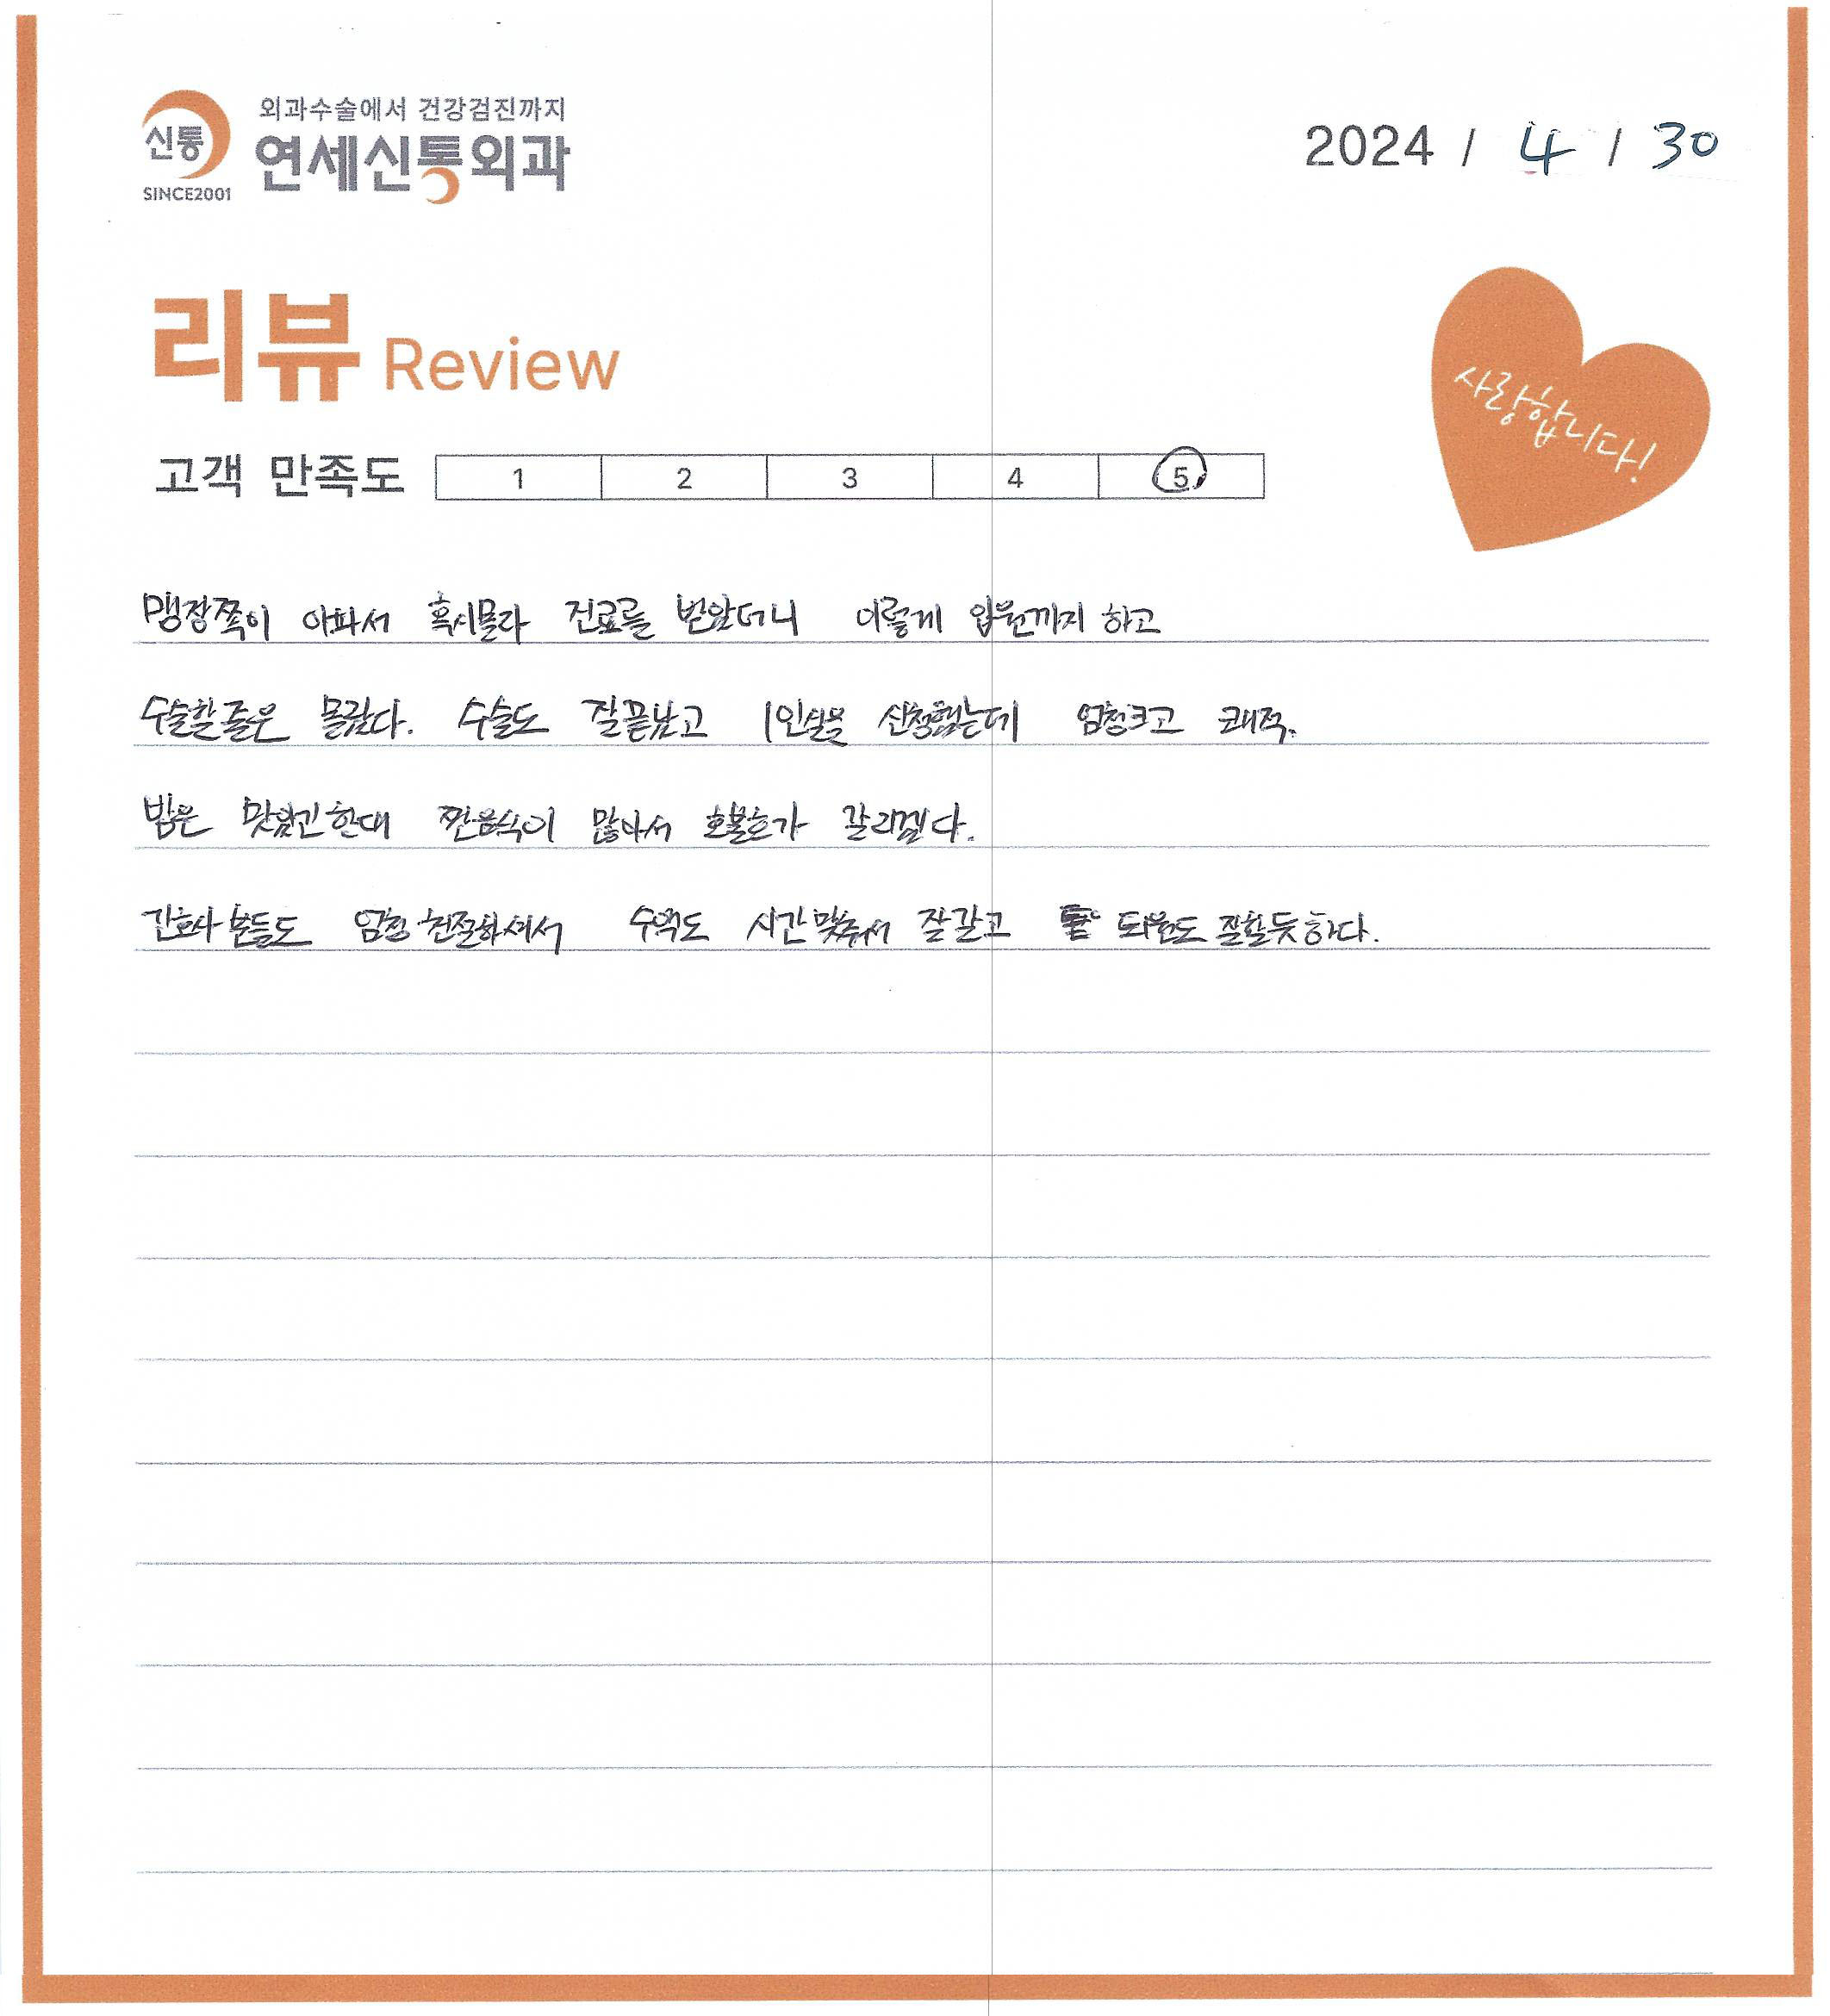 외과수술에서 건강검진까지
신통
연세신통외과
SINCE2001
2024 / 4 / 30
리뷰 Review
사랑합니다!
고객 만족도 1 2 3 4 5
맹장쪽이 아파서 혹시몰라 진료를 받았더니 이렇게 입원까지 하고
수술할줄은 몰랐다. 수술도 잘끝났고 1인실을 신청했는데 엄청크고 쾌적.
밥은 맛있긴한대 짠음식이 많아서 호불호가 갈리겠다.
간호사분들도 엄청 친절하셔서 수액도 시간맞춰서 잘갈고 도움도 잘할듯하다.